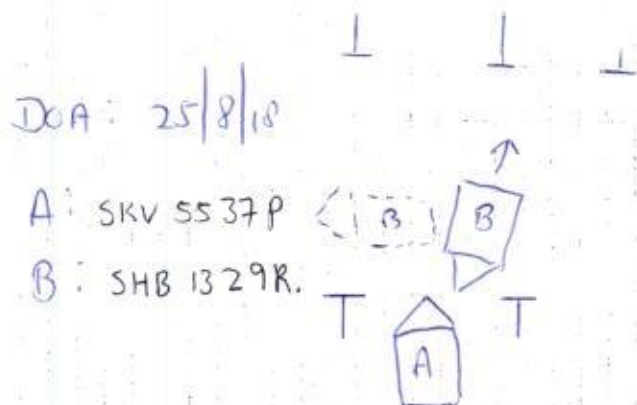 DOA: 25/8/18
A: SKV 5537P
B: SHB 1329R.
B B
A